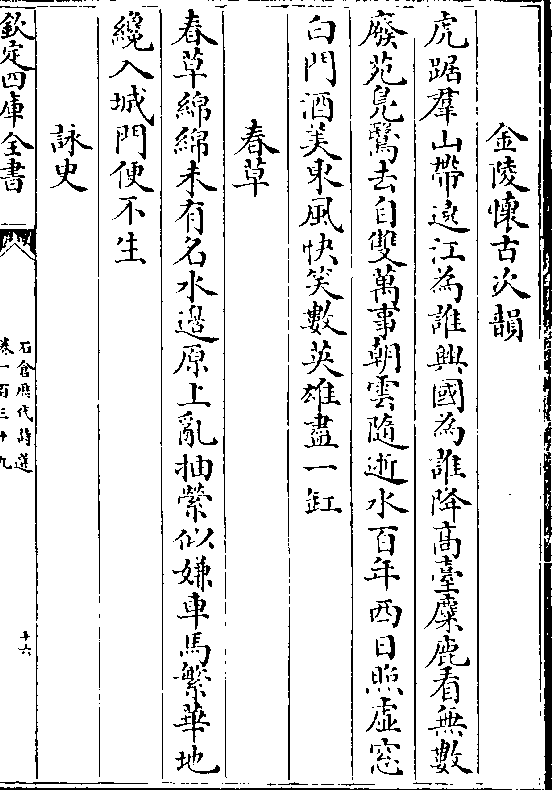 金陵懷古次韻
虎踞羣山帶遶江為誰興國為誰降高臺麋鹿看無數
廢苑鳬鷖去自雙萬事朝雲隨逝水百年西日照虛窓
白門酒美東風快笑數英雄盡一缸
春草
春草綿綿未有名水邉原上亂抽縈似嫌車馬繁華地
纔入城門便不生
詠史
欽定四庫全書
石倉歴代詩選
卷一百三十九
十六